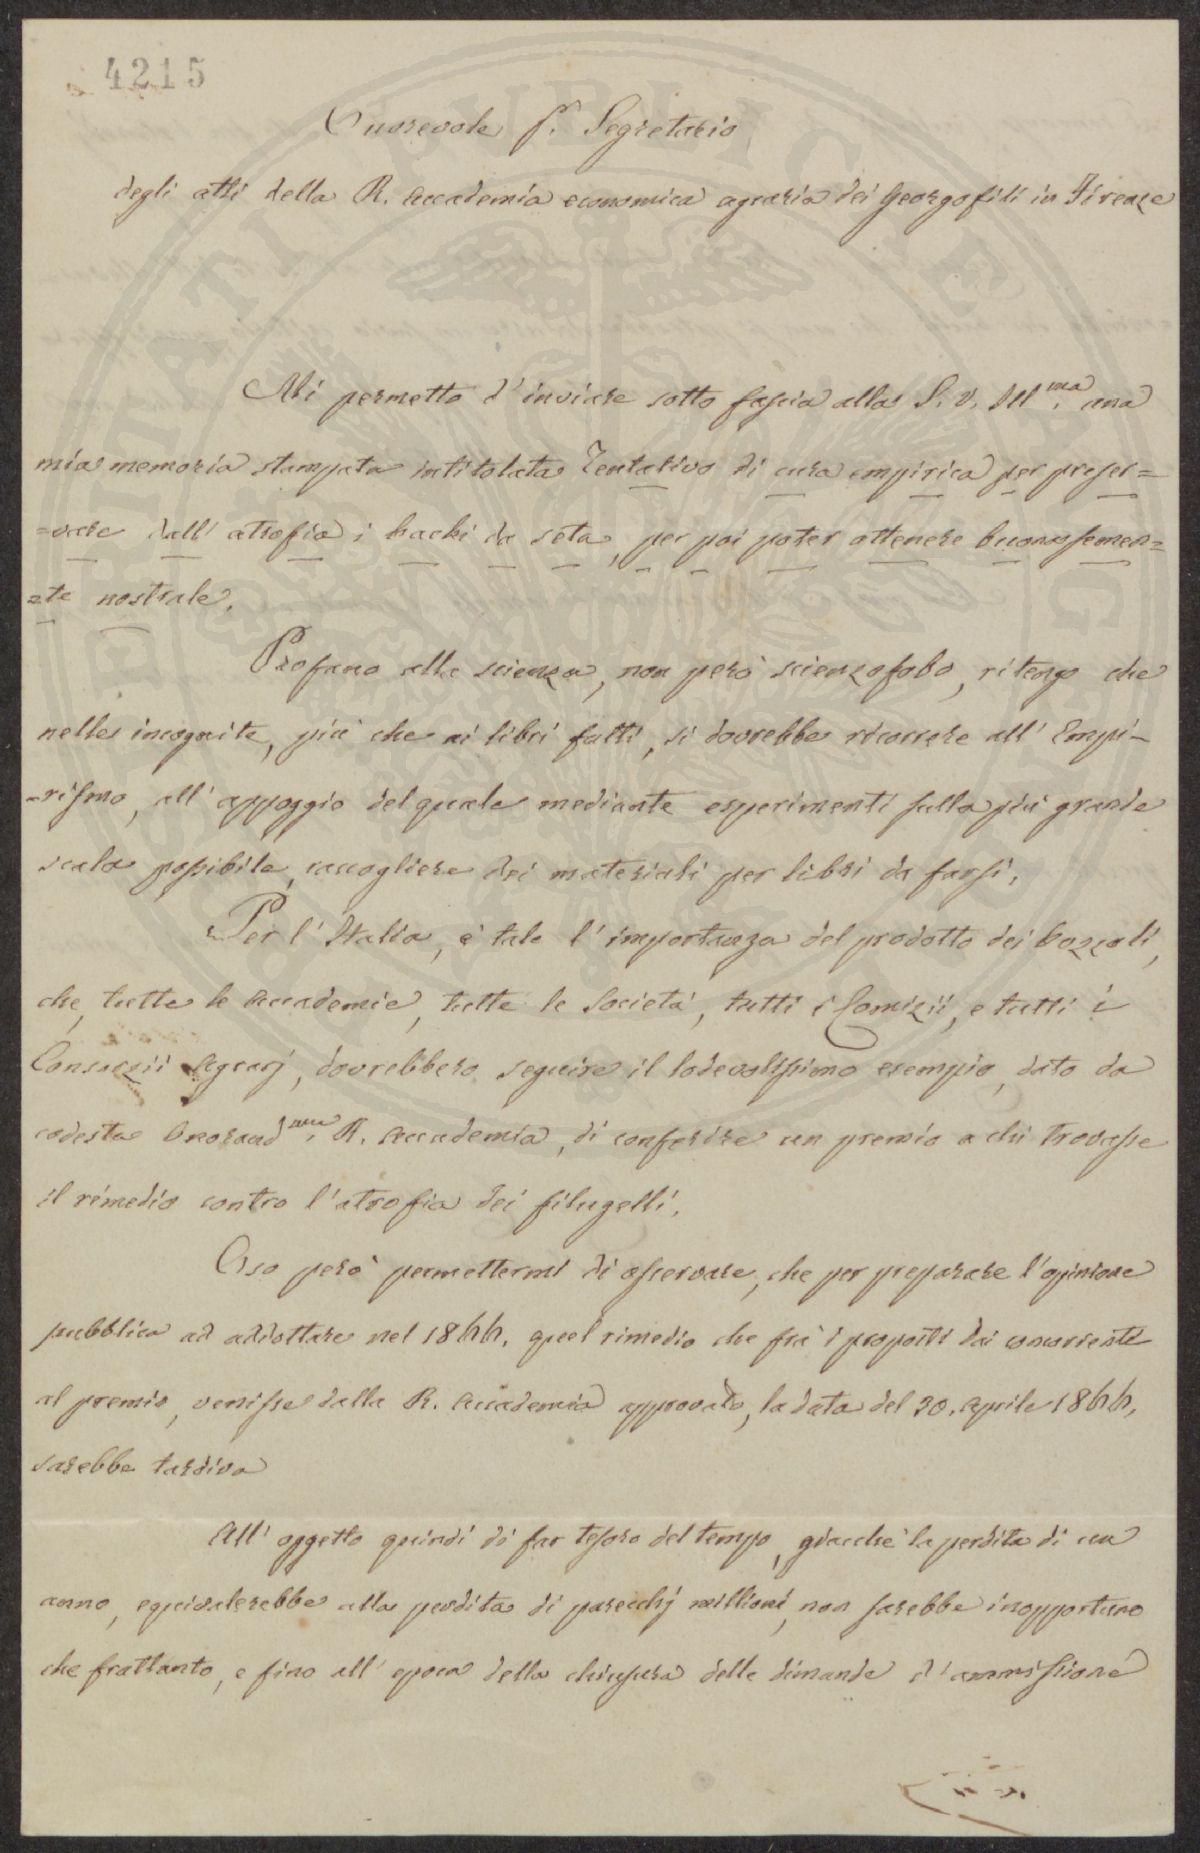 4215
Onorevole Sr. Segretario
degli atti della R. Accademia economica agraria dei Georgofili in Firenze
Mi permetto d'inviare sotto fascia alla S. V. Ill.ma una
mia memoria stampata intitolata Tentativo di cura empirica per preser=
=vare dall'atrofia i bachi da seta, per poi poter ottenere buona semen=
=te nostrale.
Profano alla scienza, non però scienzofobo, ritengo che
nelle incognite, più che ai libri fatti, si dovrebbe ricorrere all'Empi-
-rismo, all'appoggio del quale mediante esperimenti sulla più grande
scala possibile, raccogliere dei materiali per libri da farsi.
Per l'Italia, è tale l'importanza del prodotto dei bozzoli,
che, tutte le Accademie, tutte le Società, tutti i Comizii, e tutti i
Consorzii Agrarj, dovrebbero seguire il lodevolissimo esempio, dato da
codesta Onorand.ma R. Accademia, di conferire un premio a chi trovasse
il rimedio contro l'atrofia dei filugelli.
Oso però permettermi di osservare, che per preparare l'opinione
pubblica ad addottare nel 1866. quel rimedio che frà i proposti dai concorrenti
al premio, venisse dalla R. Accademia approvato, la data del 30. Aprile 1866,
sarebbe tardiva
All'oggetto quindi di far tesoro del tempo, giacchè la perdita di un
anno, equivalerebbe alla perdita di parecchj millioni, non sarebbe inopportuno
che frattanto, e fino all'epoca della chiusura delle dimande d'ammissione